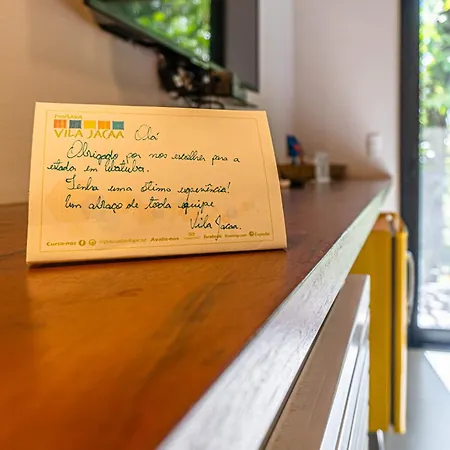 POUSADA
VILA JACAA Olá
Obrigado por nos escolher para a
estadia em Ubatuba.
Tenha uma ótima experiência!
Um abraço de toda equipe
Vila Jacaa.
Curta-nos
Avalie-nos
Booking.com Expedia